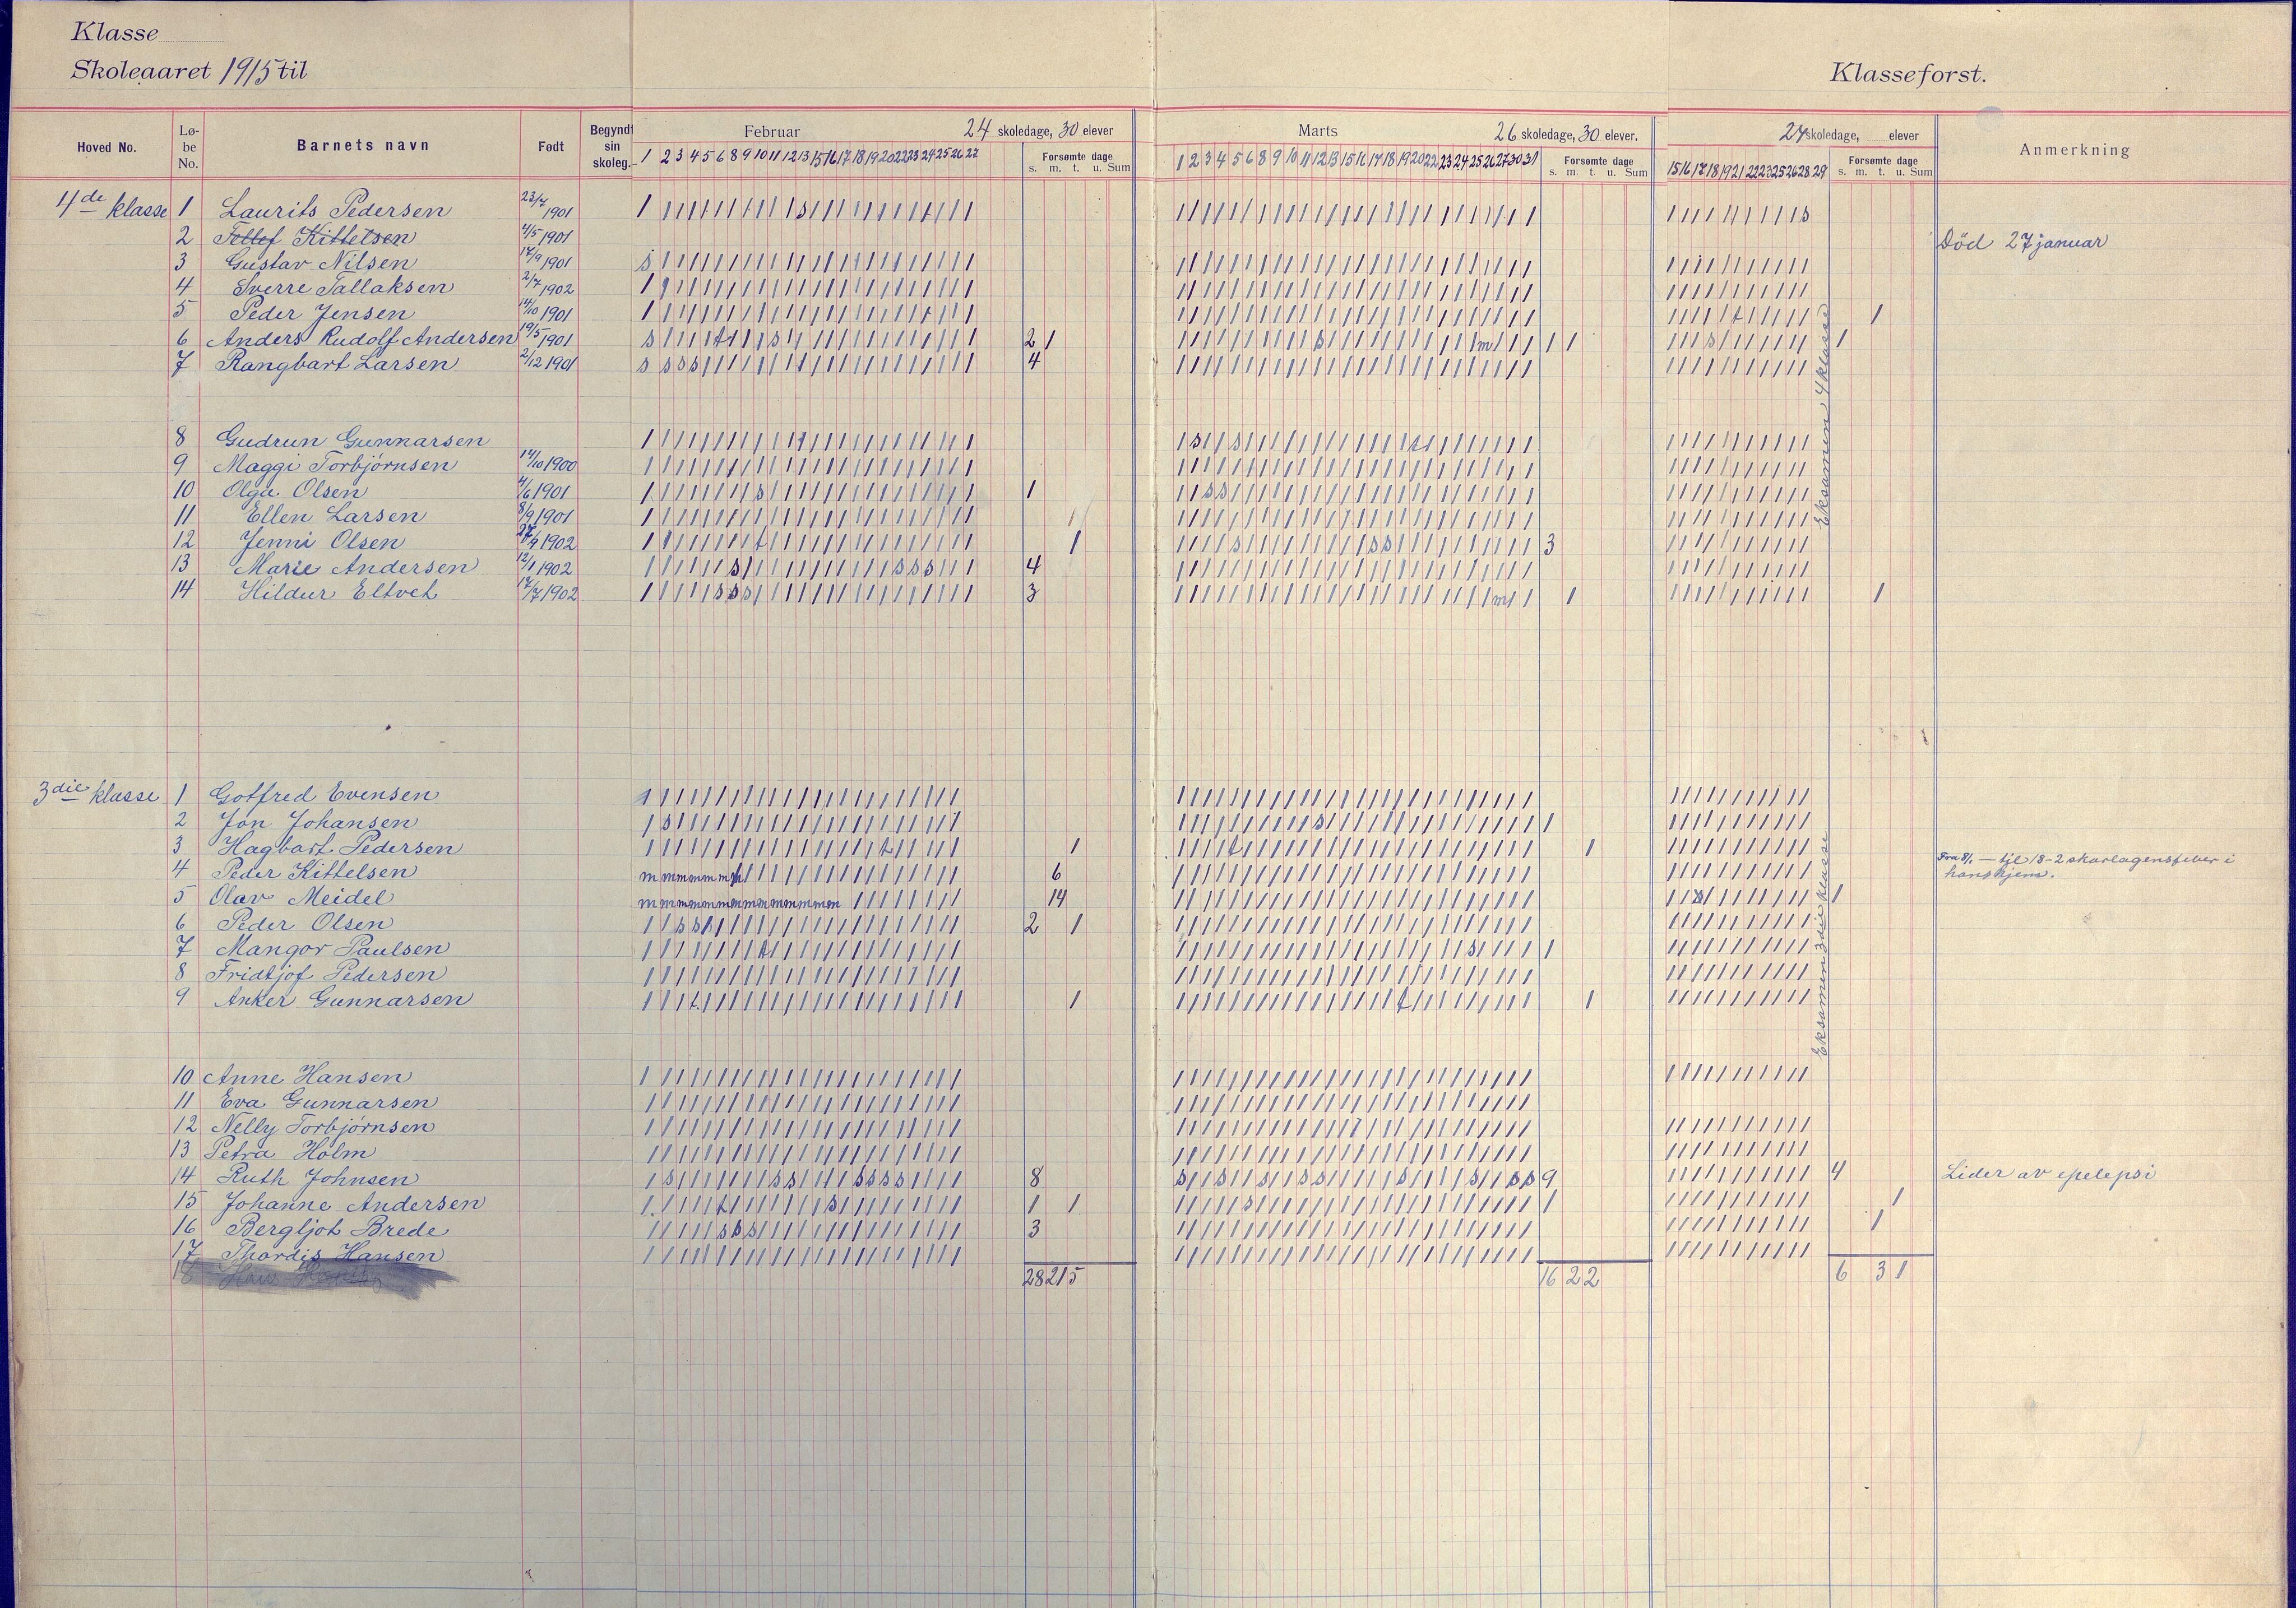 Klasse
Skoleaaret 1915 til
Klasseforst.
Hoved No. Lø-be No. Barnets navn Født Begyndt sin skoleg.
Februar 24 skoledage, 30 elever
1 2 3 4 5 6 8 9 10 11 12 13 15 16 17 18 19 20 22 23 24 25 26 27 Forsømte dage s. m. t. u. Sum
Marts 26 skoledage, 30 elever.
1 2 3 4 5 6 8 9 10 11 12 13 15 16 17 18 19 20 22 23 24 25 26 27 30 31 Forsømte dage s. m. t. u. Sum
24 skoledage, elever
15 16 17 18 19 21 22 23 25 26 28 29 Forsømte dage s. m. t. u. Sum
Anmerkning
4de klasse 1 Laurits Pedersen 23/7 1901
2 Tellef Kittelsen 4/5 1901 Död 27 januar
3 Gustav Nilsen 17/9 1901
4 Sverre Tallaksen 2/7 1902
5 Peder Jensen 14/10 1901 1
6 Anders Rudolf Andersen 19/5 1901 2 1 1 1 1
7 Rangbart Larsen 2/12 1901 4
8 Gudrun Gunnarsen
9 Maggi Torbjørnsen 14/10 1900
10 Olga Olsen 4/6 1901 1
11 Ellen Larsen 8/9 1901
12 Jenni Olsen 27/4 1902 1 3
13 Marie Andersen 12/1 1902 4
14 Hildur Eltvet 17/7 1902 3 1 1
Eksamen 4 klasse
3die klasse 1 Gotfred Evensen
2 Jon Johansen 1
3 Hagbart Pedersen 1 1
4 Peder Kittelsen 6 Fra 8/1 — til 18-2 skarlagensfeber i
hans hjem.
5 Olav Meidel 14 1
6 Peder Olsen 2 1
7 Mangor Paulsen 1
8 Fridtjof Pedersen
9 Anker Gunnarsen 1 1
Eksamen 3die klasse
10 Anne Hansen
11 Eva Gunnarsen
12 Nelly Torbjørnsen
13 Petra Holm
14 Ruth Johnsen 8 9 4 Lider av epelepsi
15 Johanne Andersen 1 1 1 1
16 Bergljot Brede 3 1
17 Thordis Hansen
18
28 21 5 16 2 2 6 3 1